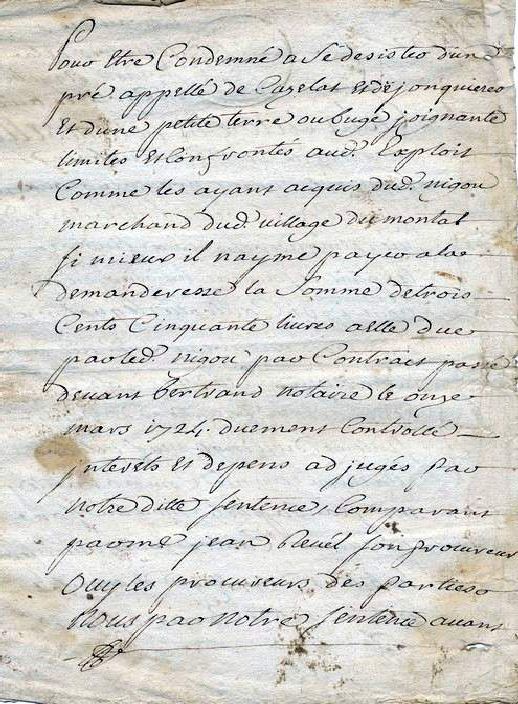 Pour Etre Condemné a Se desister d'un
pré appellé de Cazelat et de jonquieres
Et d'une petite terre ou bugé joignante
limites et Confrontés aud. Exploit
Comme les ayant acquis dud. nigou
marchand dud. village du montal
si mieux il n'ayme payer a la
demanderesse la Somme de trois
Cents Cinquante livres a elle due
par led. nigou par Contract passé
devant Bertrand notaire le onze
mars 1724. duement Controllé
jnterets et depens adjugés par
notre ditte sentence, Comparant
par me jean son procureur
Ouy les procureurs des parties
Nous par notre sentence avant